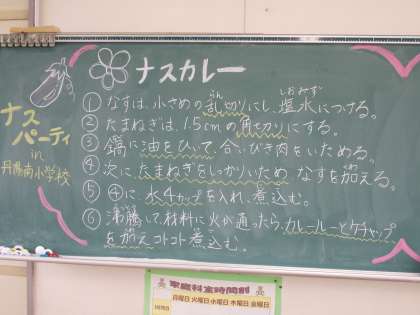 ナスカレー
ナス
パーティ
in
丹陽南小学校
① なすは、小さめの乱切りにし、塩水につける。
らん
しおみず
② たまねぎは、1.5cmの角切りにする。
③ 鍋に油をひいて、合いびき肉をいためる。
④ 次に、たまねぎをしっかりいため なすを加える。
⑤ ④に、水4カップを入れ、煮込む。
⑥ 沸騰して材料に火が通ったら、カレールーとケチャップ
を加えコトコト煮込む。
家庭科室時間割
月曜日 火曜日 水曜日 木曜日 金曜日